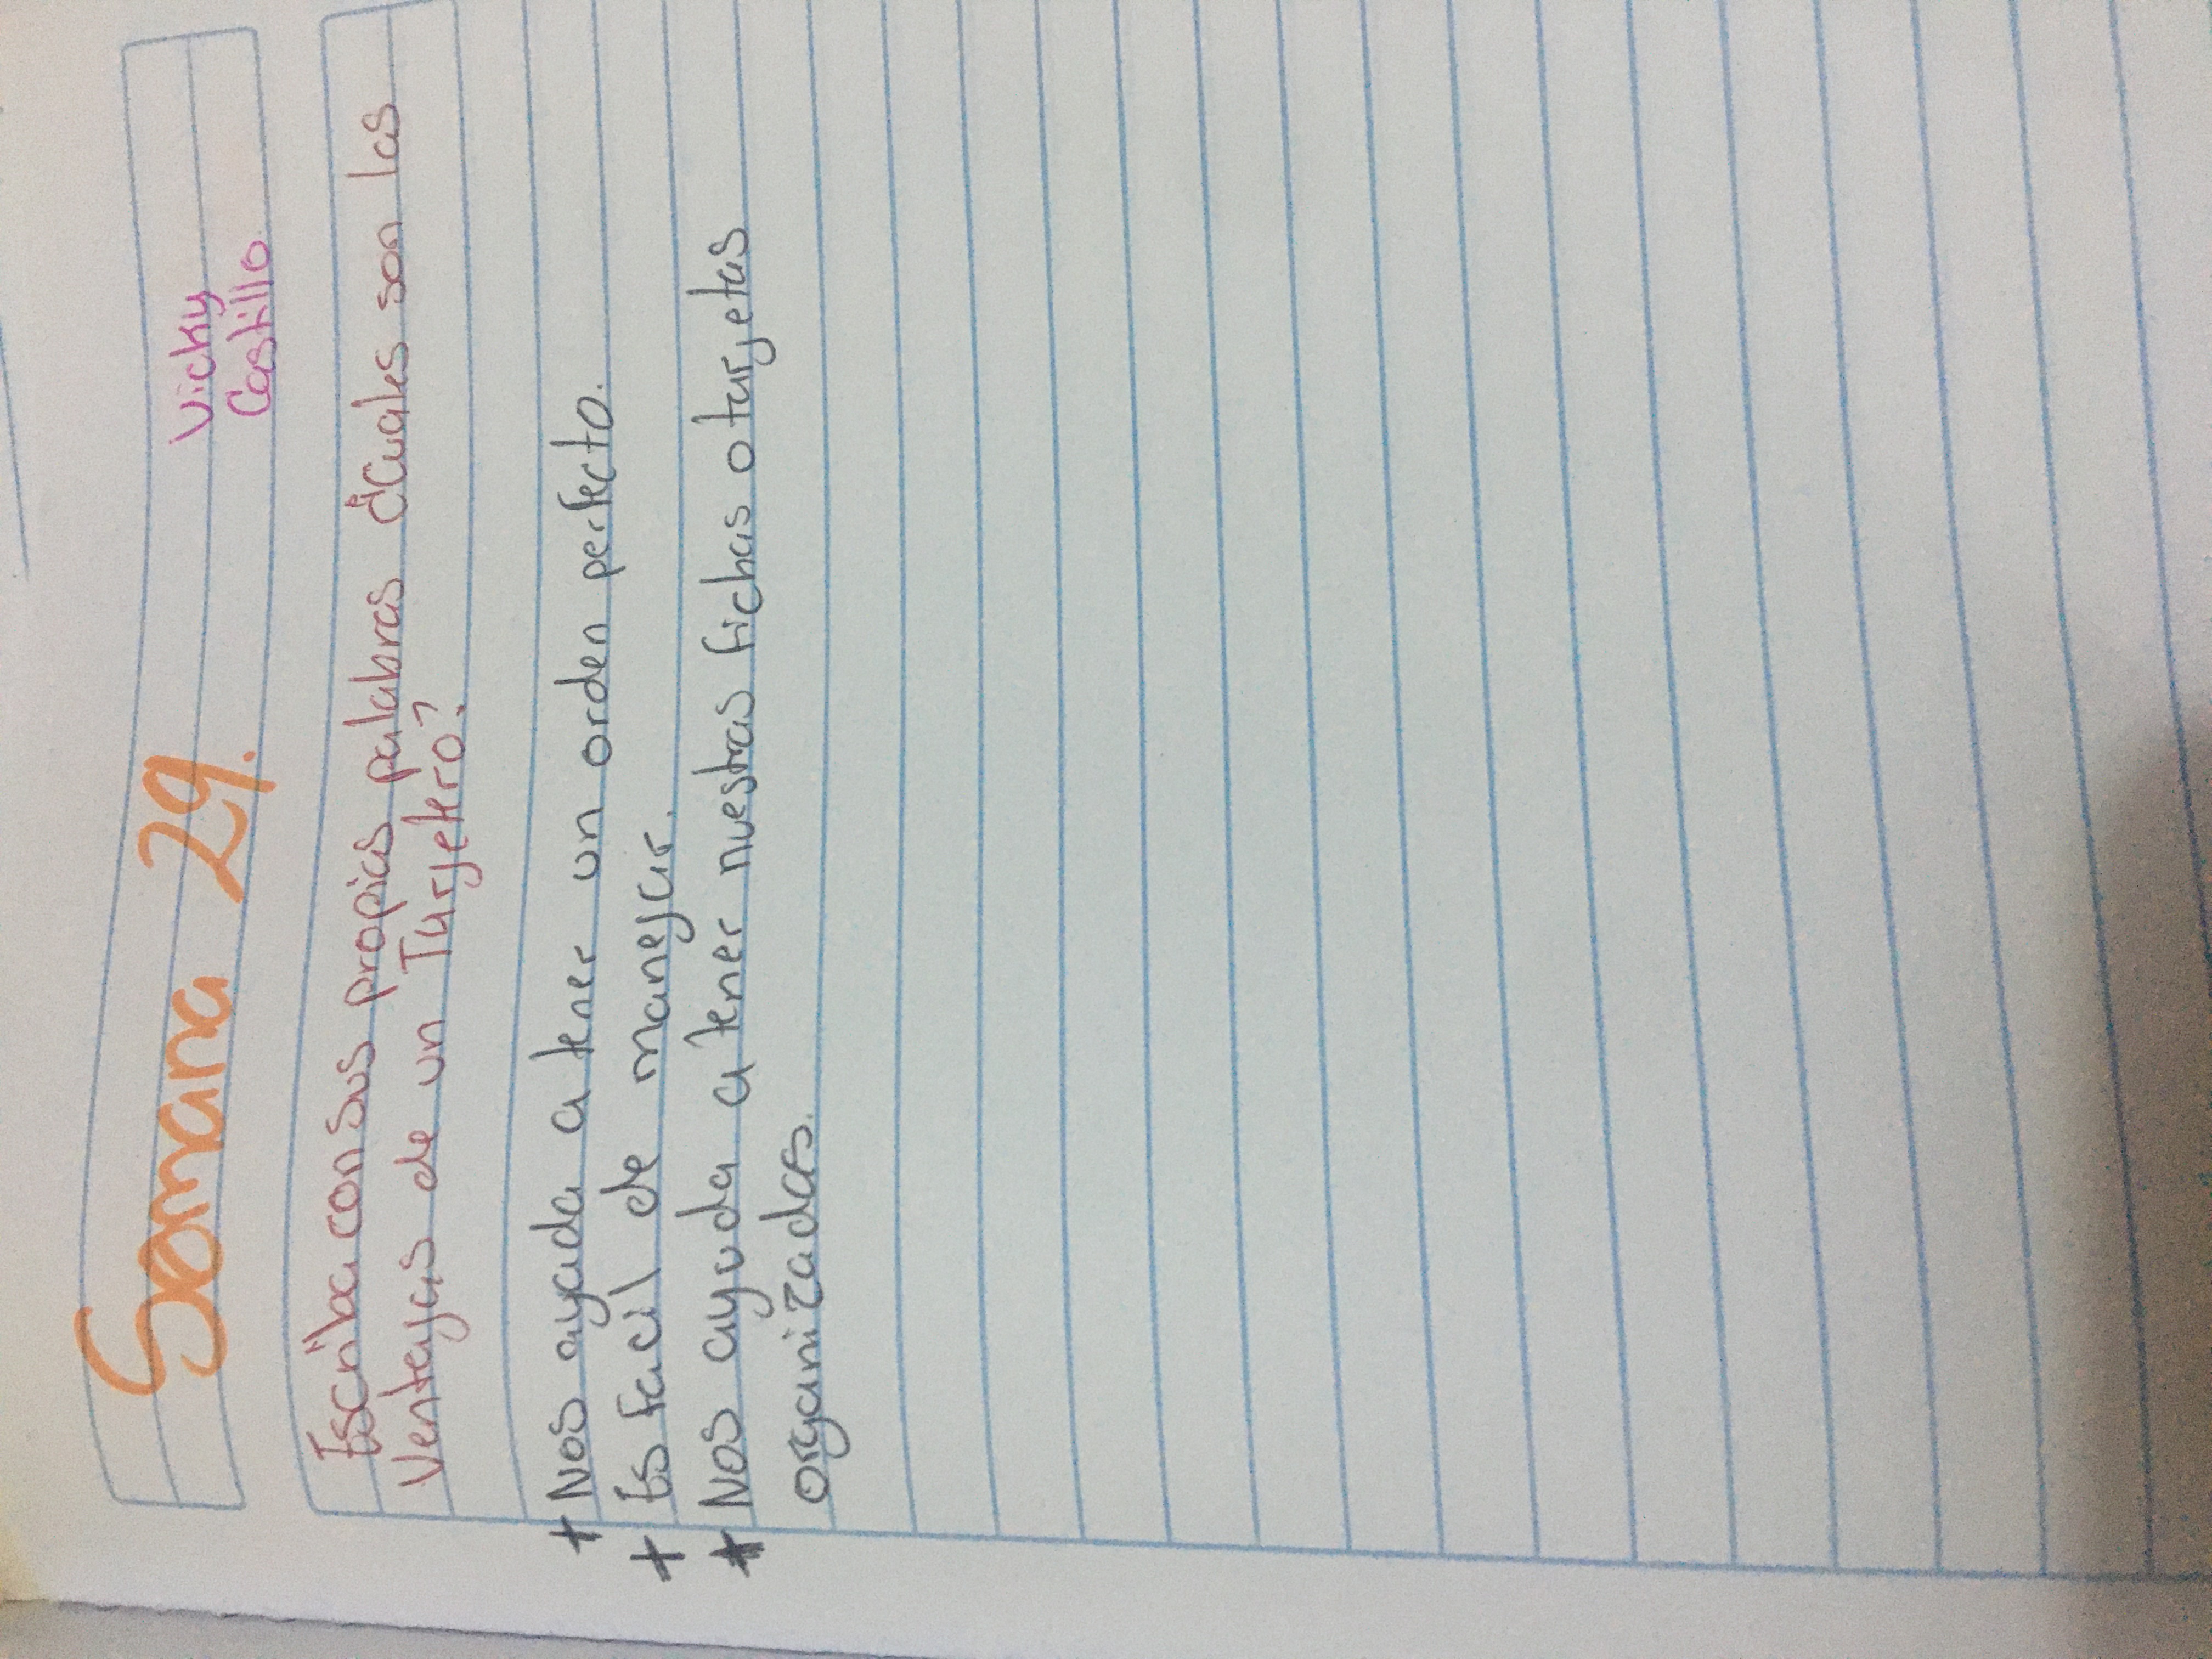 Semana 29.
Vicky
Castillo.
Escriba con sus propias palabras ¿Cuales son las
Ventajas de un Tarjetero?
+ Nos ayada a tener un orden perfecto.
+ Es facil de manejar.
* Nos ayuda a tener nuestras fichas o tarjetas
organizadas.